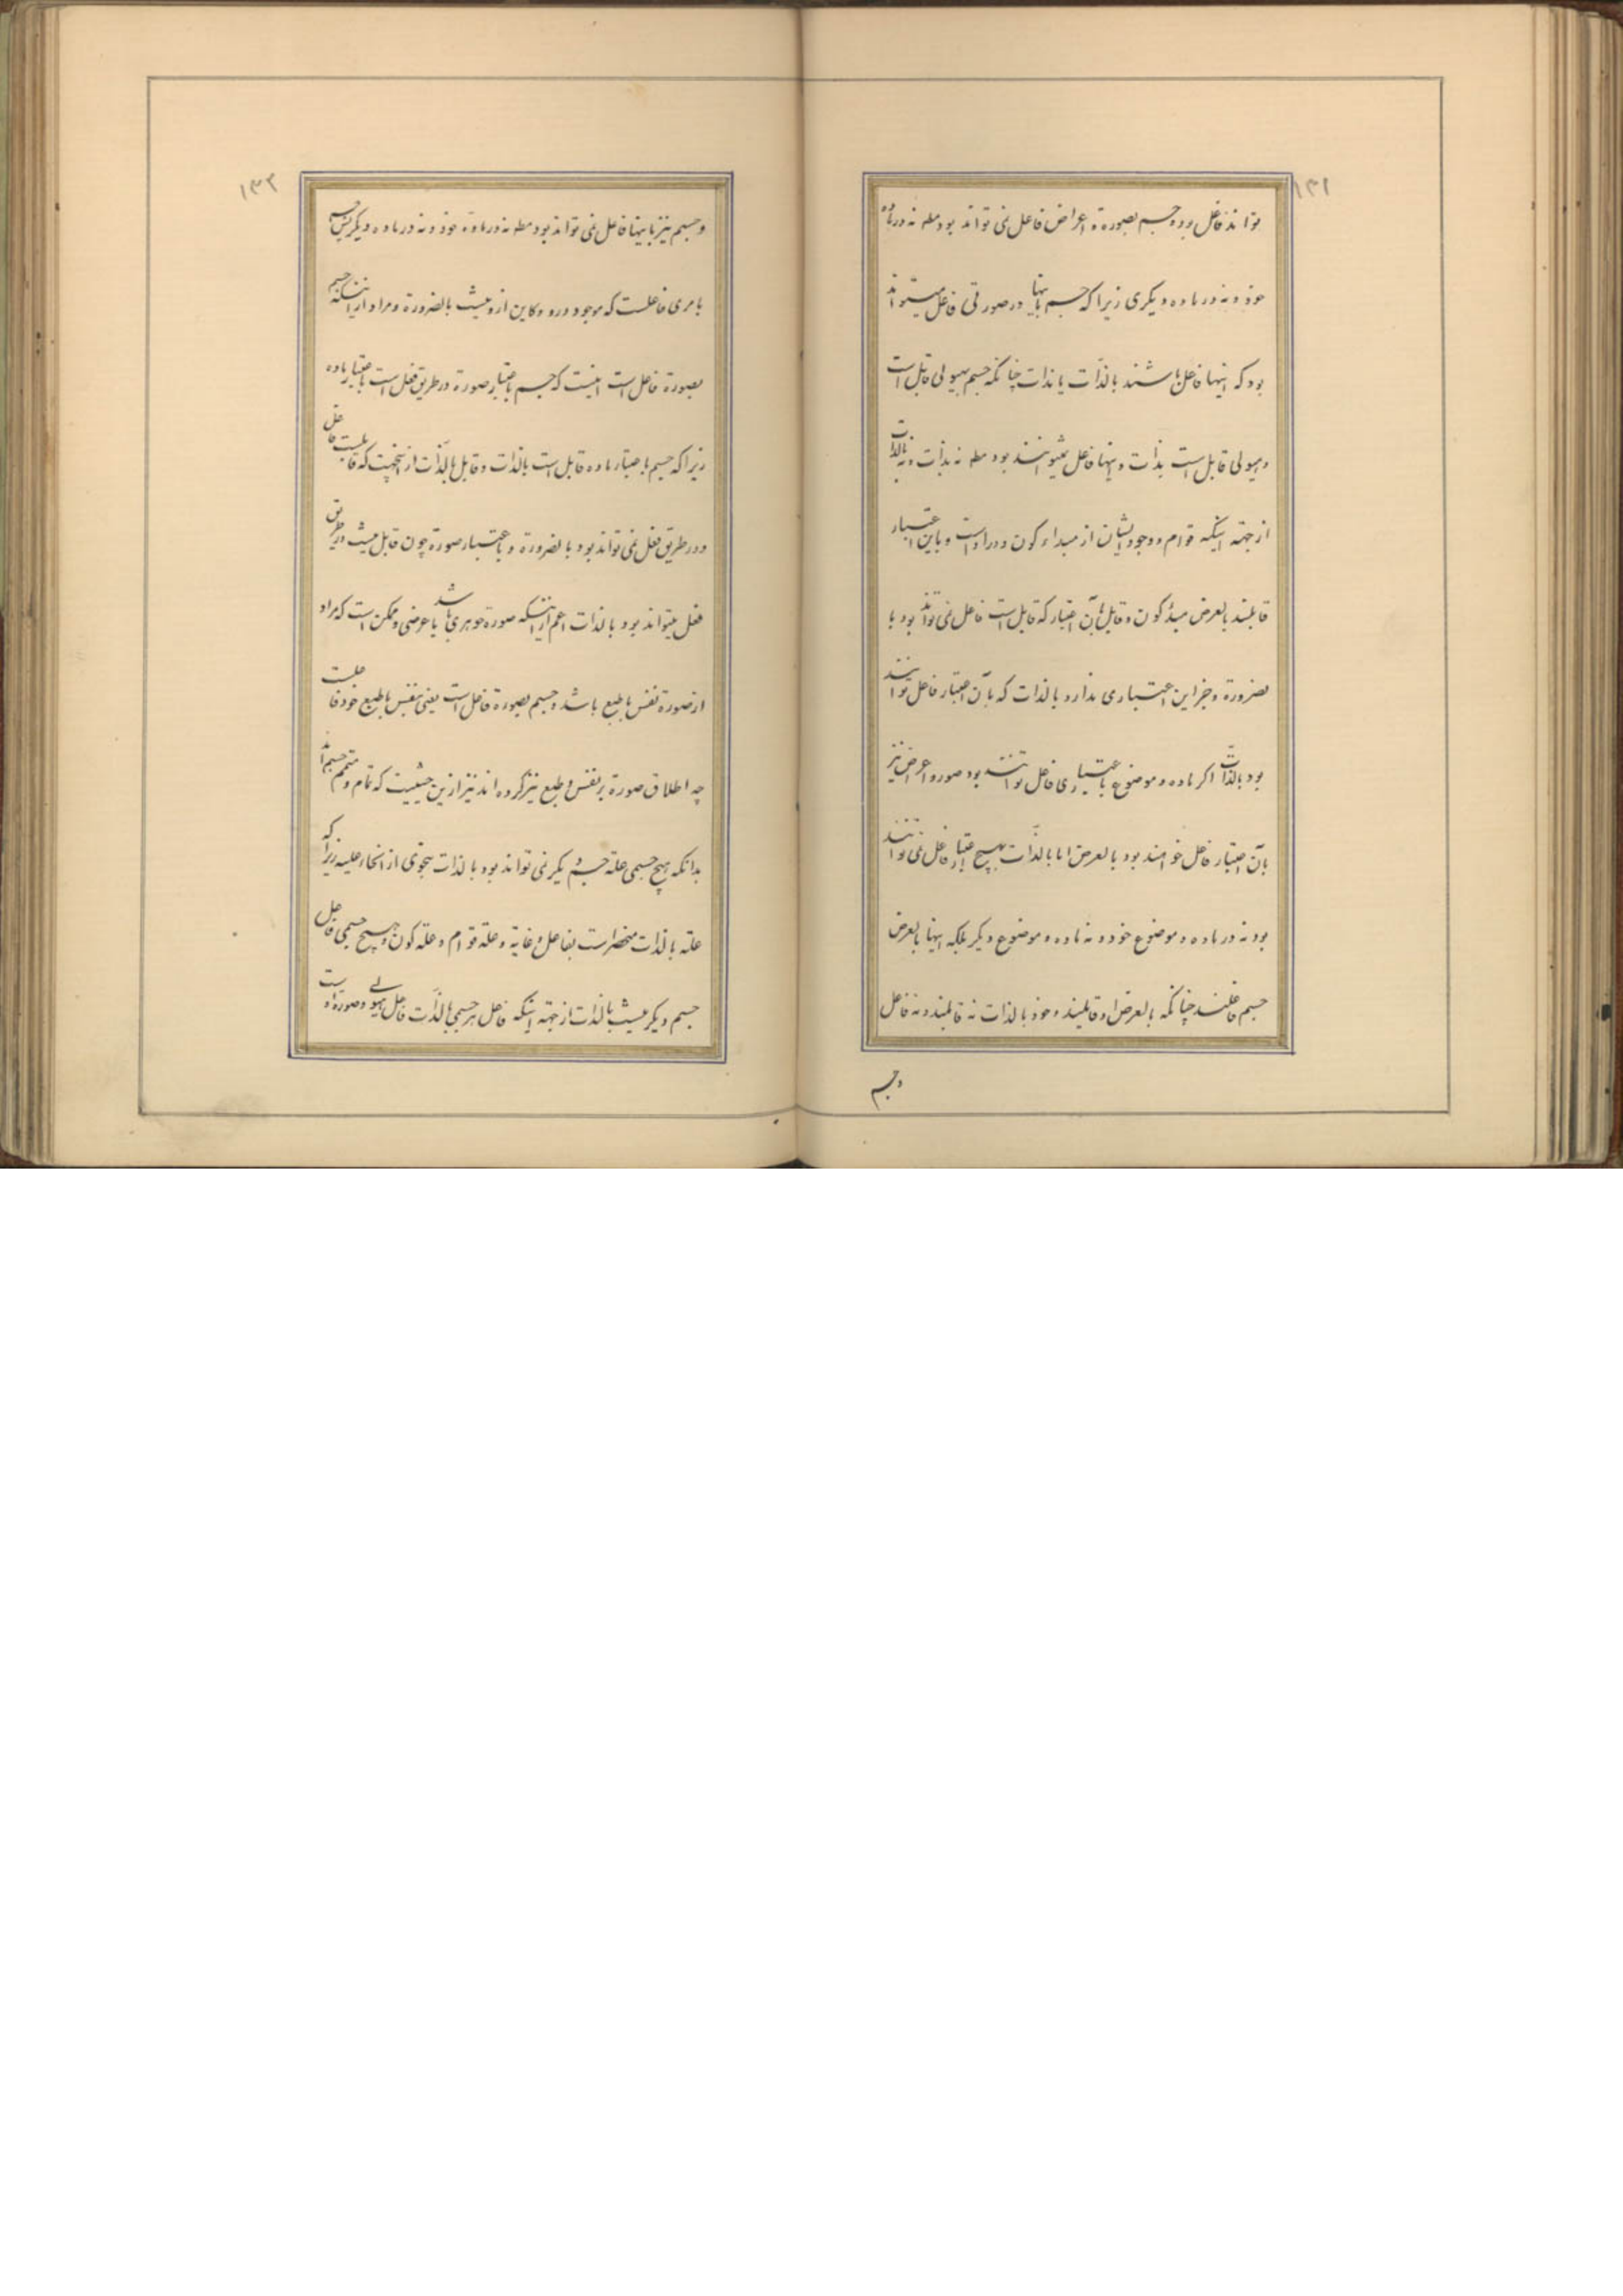 ۱۳۱
تواند فاعل بود و جسم بصورة و اعراض فاعل نمی تواند بود مطه نه در ماده
خود و نه در ماده دیگری زیرا که جسم باینها در صورتی فاعل میتواند
بود که اینها فاعل باشند بالذات یا بذات چنانکه جسم بهیولی قابل است
و هیولی قابل است بذات و اینها فاعل نمیتوانند بود مطه نه بذات و نه بالذات
از جهته اینکه قوام و وجود ایشان از مبداء کون و در اوست و باین اعتبار
قابلند بالعرض مبدأ کون و قابل بآن اعتبار که قابل است فاعل نمی تواند بود با
لضرورة و جز این اعتباری ندارد بالذات که بآن اعتبار فاعل توانند
بود بالذات اکر ماده و موضوع باعتباری فاعل توانند بود صور و اعراض نیز
بآن اعتبار فاعل خواهند بود بالعرض اما بالذات بهیچ اعتبار فاعل نمی توانند
بود نه در ماده و موضوع خود و نه ماده و موضوع دیکر بلکه اینها بالعرض
جسم فاعلند چنانکه بالعرض او قابلیند و خود بالذات نه قابلیند و نه فاعل
و جسم
۱۳۲
و جسم نیز باینها فاعل نمی تواند بود مطه نه در ماده خود و نه در ماده دیکر پس جسم
بامری فاعلست که موجود در و و کاین از و نیست بالضرورة و مراد از اینکه جسم
بصورة فاعل است اینست که جسم باعتبار صورة در طریق فعل است باعتبار ماده
زیرا که جسم باعتبار ماده قابل است بالذات و قابل بالذات از آنجهت که قابلست فاعل
و در طریق فعل نمی تواند بود بالضرورة و باعتبار صورة چون قابل نیست در طریق
فعل میتواند بود بالذات اعم از اینکه صورة جوهری باشد یا عرضی و ممکن است که مراد
از صورة نفس یا طبع باشد و جسم بصورة فاعل است یعنی بنفس یا طبع خود فاعلست
چه اطلاق صورة بر نفس و طبع نیز کرده اند نیز ازین حیثیت که تمام و متمم جسم اند
بدانکه هیچ جسمی علة جسم دیکر نمی تواند بود بالذات بنحوی از انحاء علیه زیرا که
علة بالذات منحصر است بفاعل و غایة و علة قوام و علة کون و هیچ جسمی فاعل
جسم دیکر نیست بالذات از جهته اینکه فاعل هر جسمی بالذات فاعل هیولی و صورة اوست